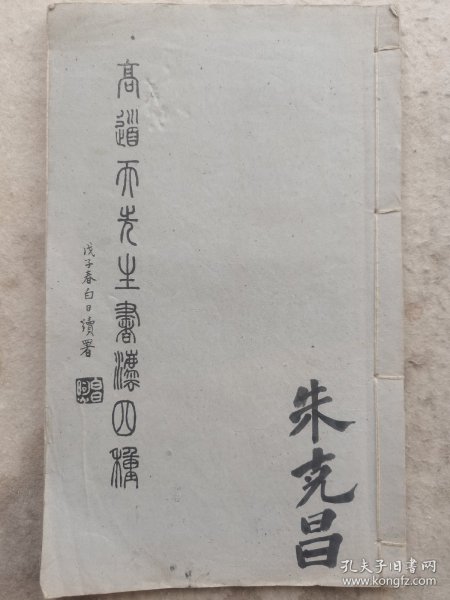 朱克昌
高道天先生書灋四種
戊子春白日讀署
孔夫子旧书网
www.kongfz.com